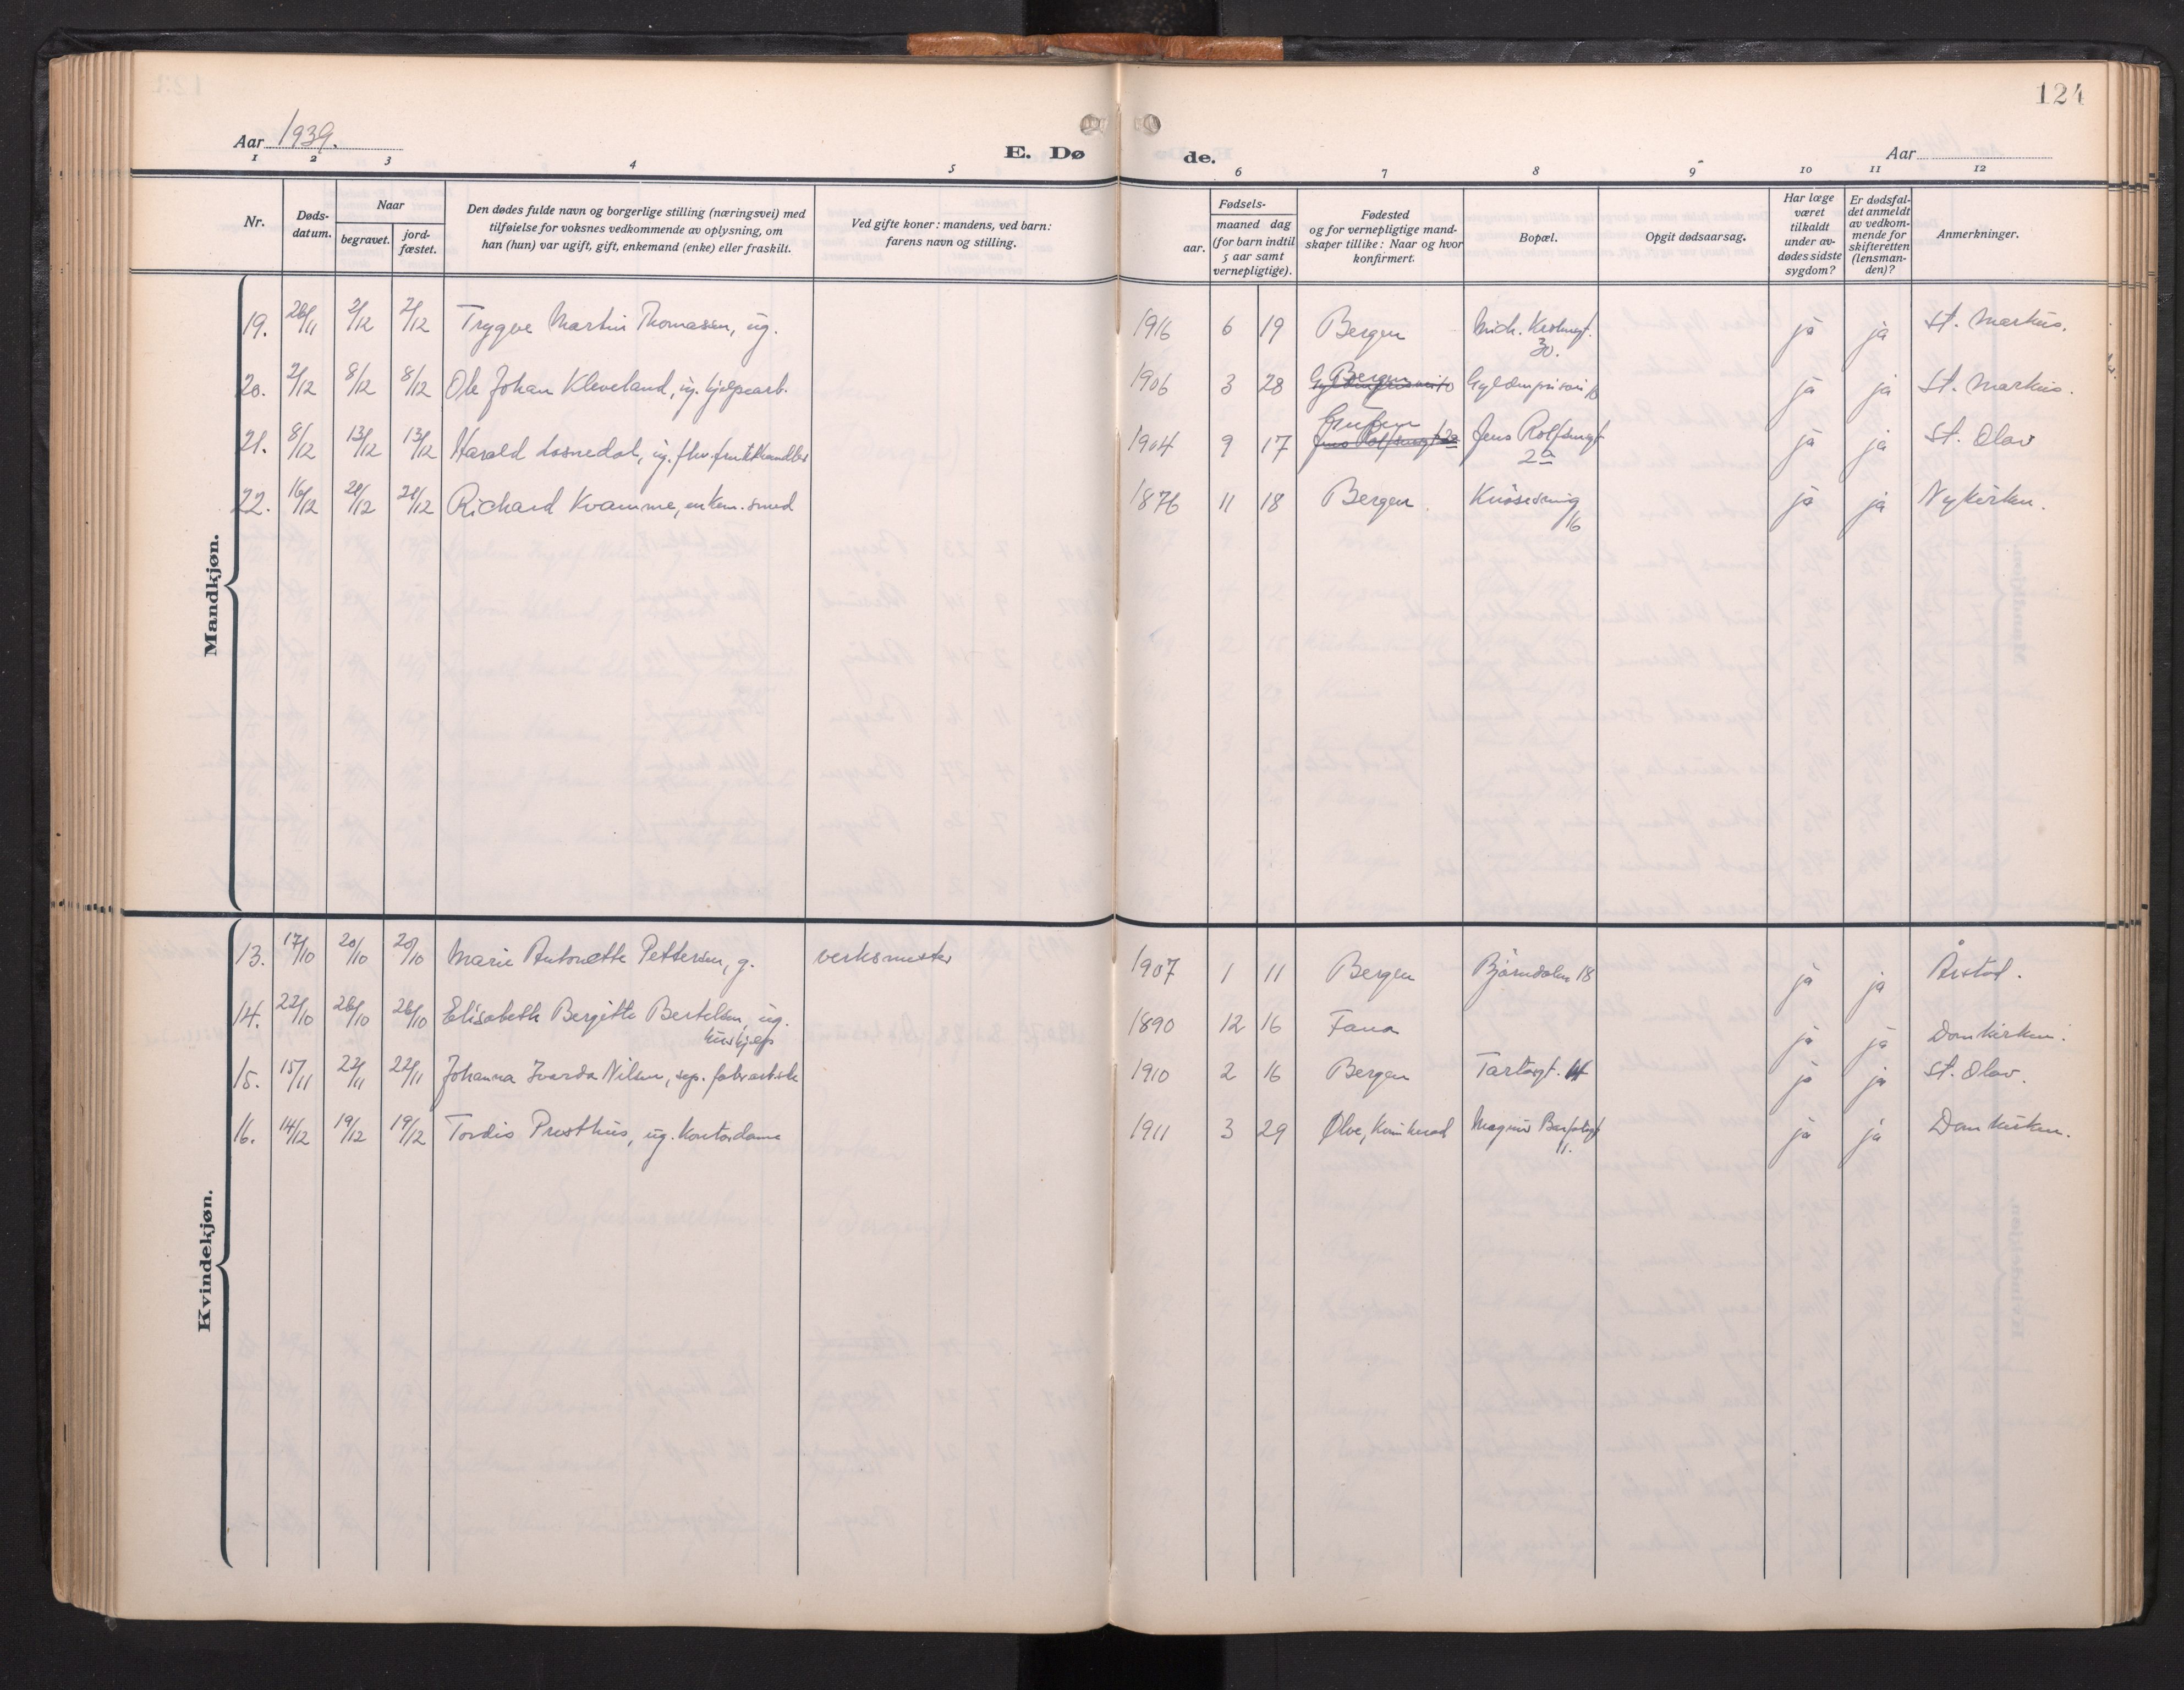 124
Aar 1939.
E. Dø
de.
Aar
1 2 3 4 5 6 7 8 9 10 11 12
Nr.
Døds-
datum.
Naar
begravet.
jord-
fæstet.
Den dødes fulde navn og borgerlige stilling (næringsvei) med
tilføielse for voksnes vedkommende av oplysning, om
han (hun) var ugift, gift, enkemand (enke) eller fraskilt.
Ved gifte koner: mandens, ved barn:
farens navn og stilling.
Fødsels-
aar.
maaned dag
(for barn indtil
5 aar samt
vernepligtige).
Fødested
og for vernepligtige mand-
skaper tillike: Naar og hvor
konfirmert.
Bopæl.
Opgit dødsaarsag.
Har læge
været
tilkaldt
under av-
dødes sidste
sygdom?
Er dødsfal-
det anmeldt
av vedkom-
mende for
skifteretten
(lensman-
den)?
Anmerkninger.
Mandkjøn.
19. 26/11 2/12 2/12 Trygve Martin Thomassen, ug. 1916 6 19 Bergen Mich. Krohnsgt. 30. ja ja St. Markus.
20. 2/12 8/12 8/12 Ole Johan Kleveland, ug. hjelpearb. 1906 3 28 Bergen ja ja St. Markus.
21. 8/12 13/12 13/12 Harald Losnedal, ug. fhv. frukthandler 1904 9 17 Jens Rolfsengt 2a ja ja St. Olav
22. 16/12 21/12 21/12 Richard Kvamme, enkem. smed 1876 11 18 Bergen. Knøsesmug 16 ja ja Nykirken.
Kvindekjøn.
13. 17/10 20/10 20/10 Marie Antonette Pettersen, g. verksmester 1907 1 11 Bergen Bjørndalen 18 ja ja Årstad.
14. 22/10 26/10 26/10 Elisabeth Bergitte Bertelsen, ug. hushjelp 1890 12 16 Fana ja ja Domkirken.
15. 15/11 22/11 22/11 Johanna Nilsen, sep. fabr.arb.ske 1910 2 16 Bergen ja ja St. Olav.
16. 14/12 19/12 19/12 Tordis Presthus, ug. kontordame 1911 3 29 Ølve, Kvinherad Magnus Barfotsgt 11. ja ja Domkirken.